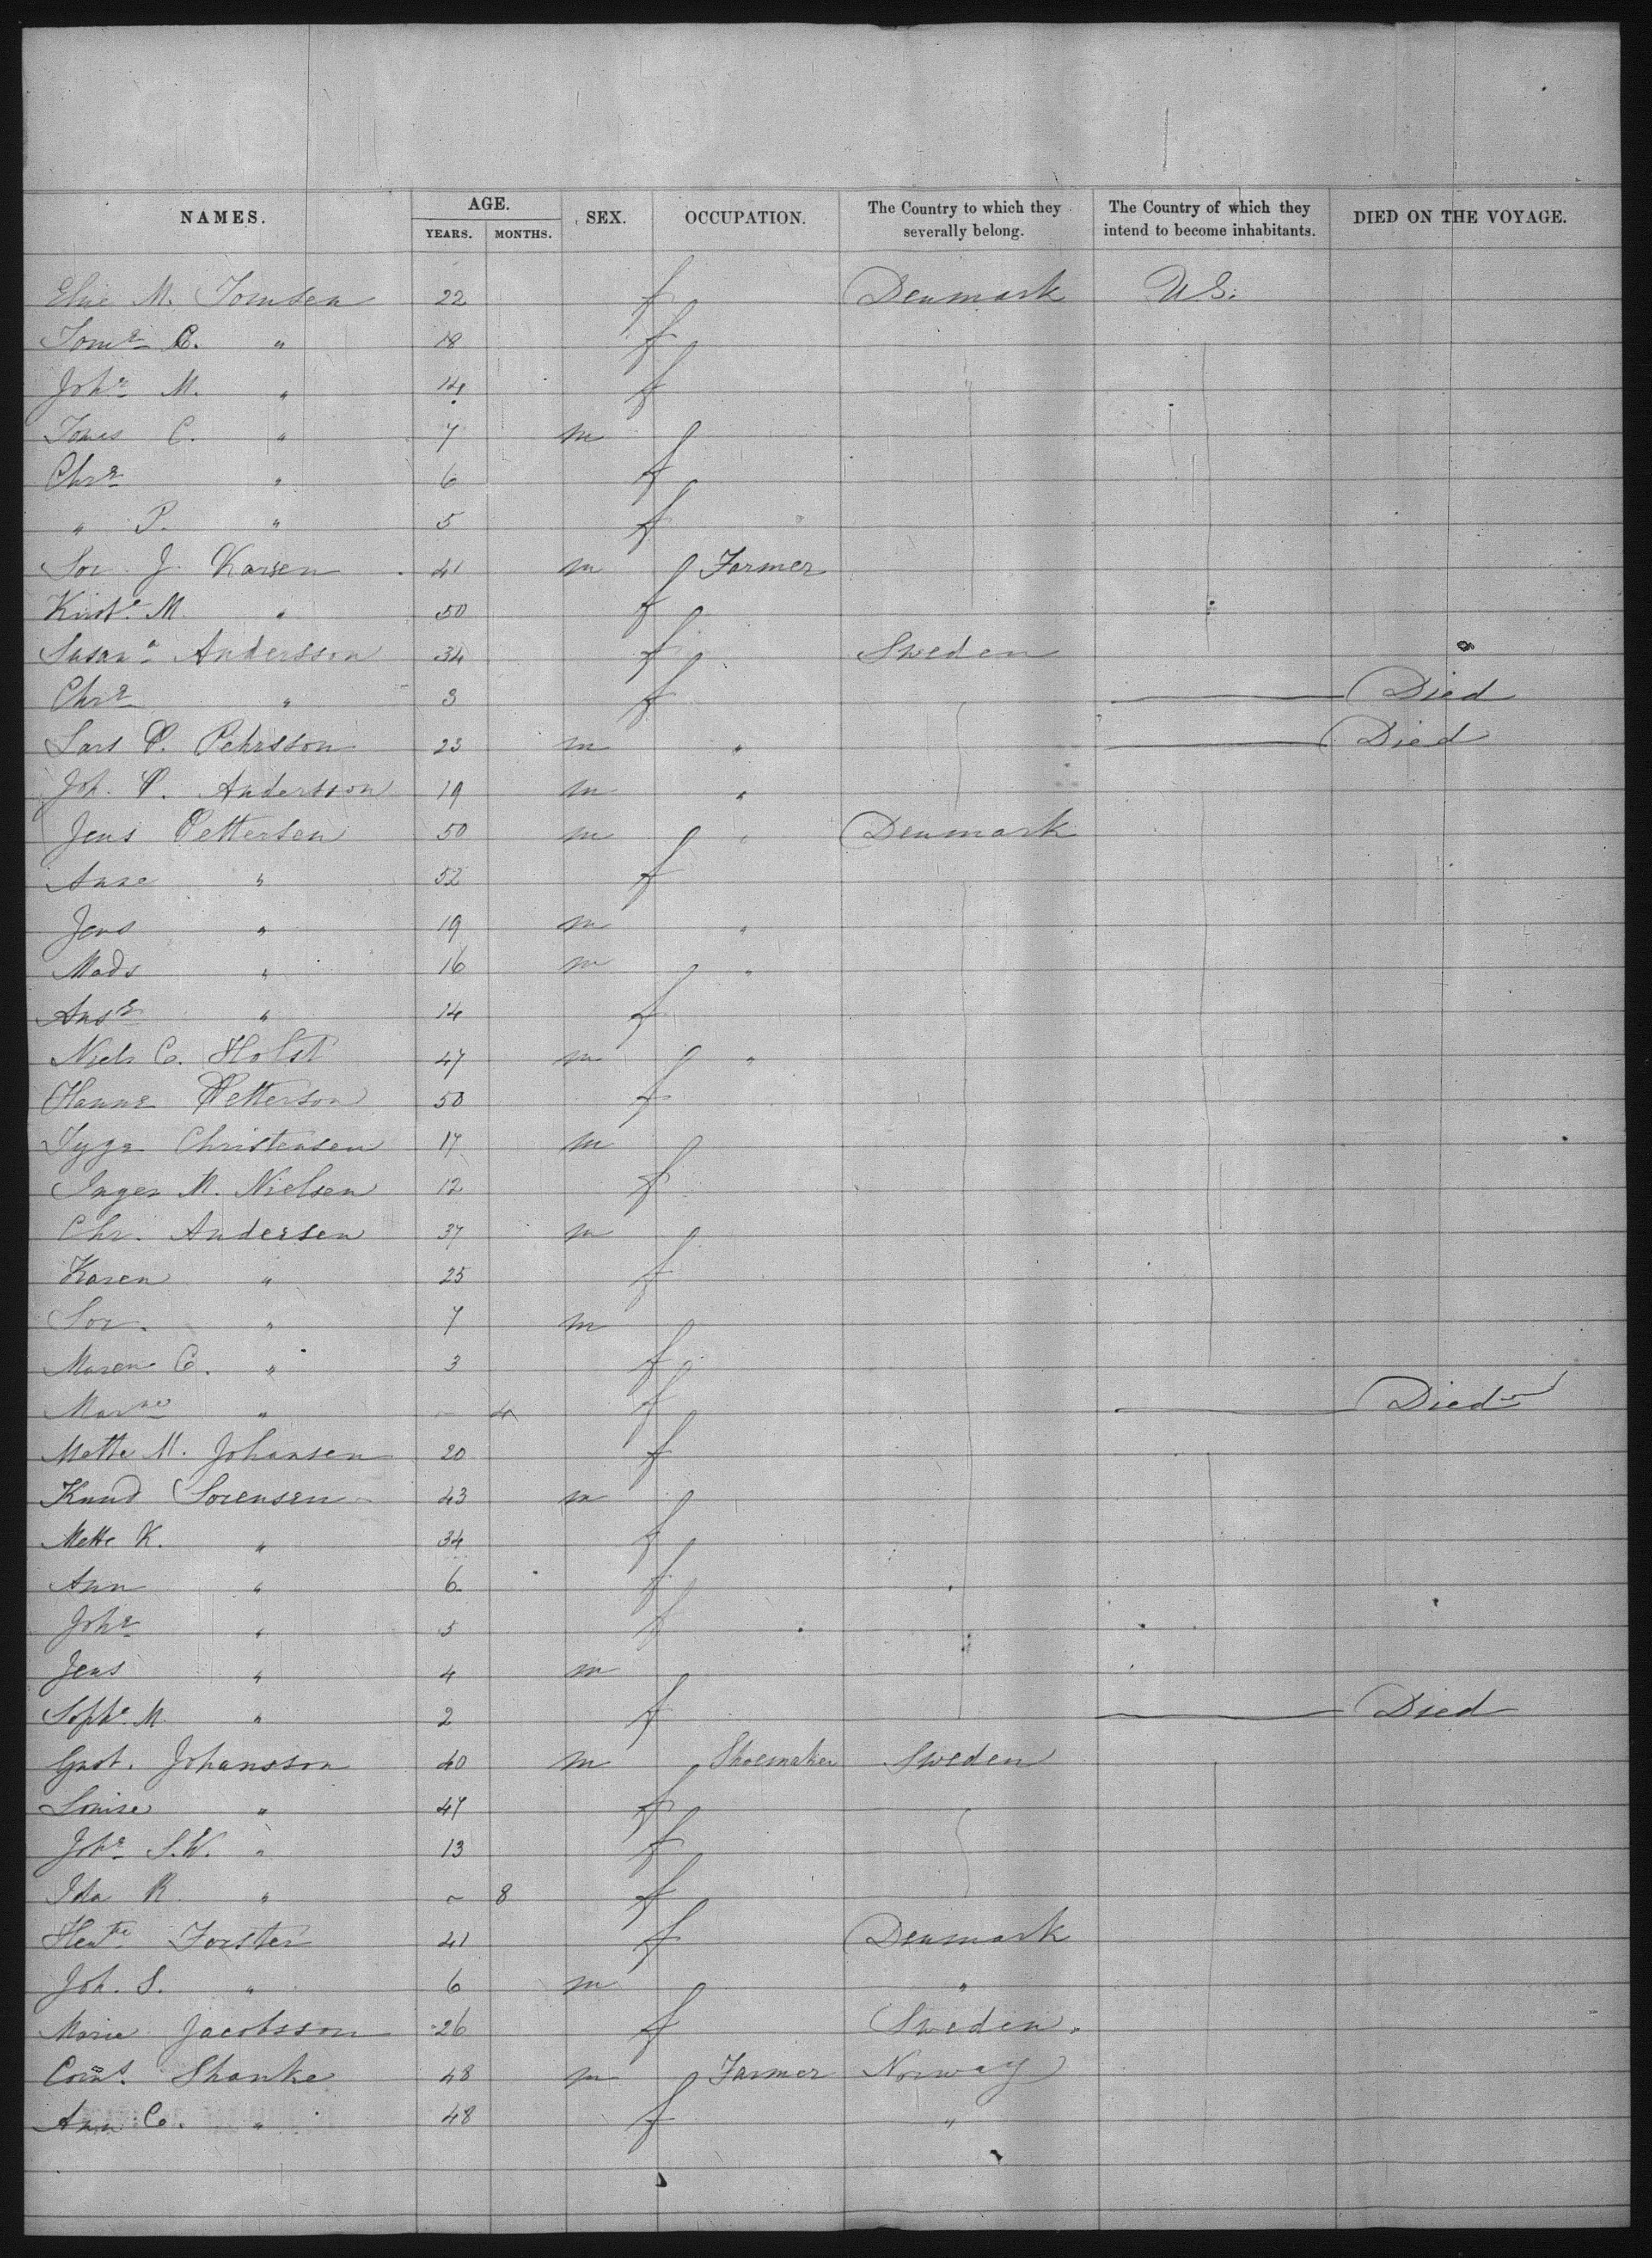 NAMES. AGE. SEX. OCCUPATION. The Country to which they severally belong. The Country of which they intend to become inhabitants. DIED ON THE VOYAGE.
YEARS. MONTHS.
Elsie M. Tomsen 22 f Denmark U.S.
Tomne C. " 18 f
Johe M. " 14 f
Tones C. " 7 m
Chre " 6 f
" P. " 5 f
Sor. J. Karsen 41 m Farmer
Kirste M. " 50 f
Susana Andersson 34 f Sweden
Chre " 3 f Died
Lars P. Pehrsson 23 m " Died
Joh. P. Andersson 19 m "
Jens Pettersen 50 m " Denmark
Anne " 52 f
Jens " 19 m "
Mads " 16 m "
Anse " 14 f
Niels C. Holst 47 m "
Hanne Petterson 50 f
Tyge Christensen 17 m
Inger M. Nielsen 12 f
Chr. Andersen 37 m
Karen " 25 f
Sor. " 7 m
Maren C. " 3 f
Marne " – 4 f Died
Mette M. Johansen 20 f
Knud Sorensen 43 m
Mette K. " 34 f
Ann " 6 f
Johe " 5 f
Jens " 4 m
Sophe M. " 2 f Died
Gust. Johansson 40 m Shoemaker Sweden
Louise " 47 f
Johe S.W. " 13 f
Ida R. " – 8 f
Hente Forster 41 f Denmark
Joh. S. " 6 m "
Marie Jacobsson 26 f Sweden.
Corns. Shanke 48 m Farmer Norway
Ann C. " 48 f "